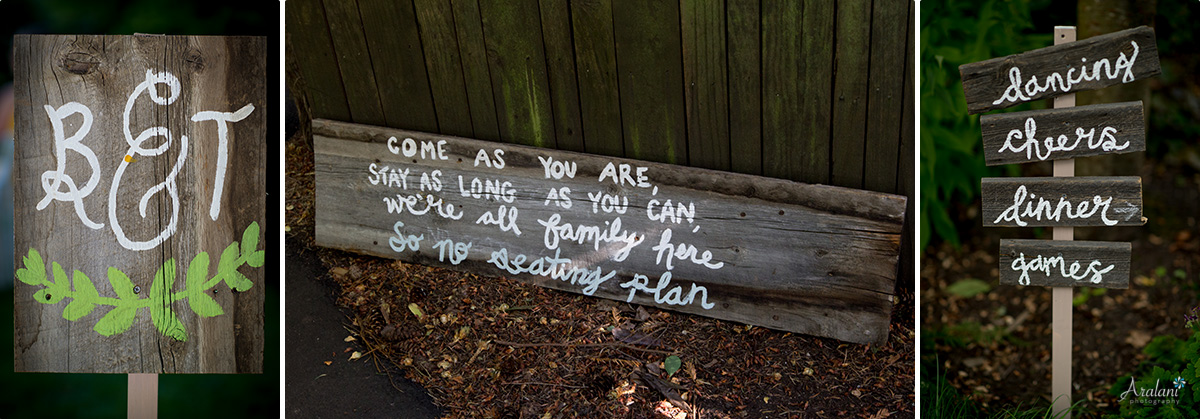 B & T
COME AS YOU ARE,
STAY AS LONG AS YOU CAN,
we're all family here
So no seating plan
dancing
cheers
dinner
games
Aralani
photography